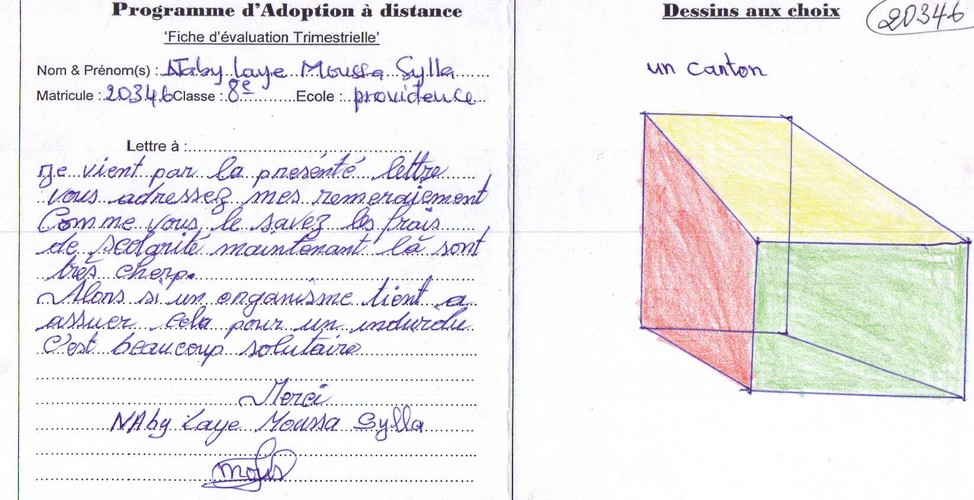 Programme d'Adoption à distance
'Fiche d'évaluation Trimestrielle'
Nom & Prénom(s) : Naby Laye Moussa Sylla
Matricule : 20346 Classe : 8e Ecole : providence
Lettre à :
Je vient par la presenté lettre
vous adressez mes remerciement
Comme vous le savez les frais
de scolarité maintenant là sont
très cherp.
Alors si un organisme tient a
assuer cela pour un
c'est beaucoup solutaire
Merci
NAby Laye Moussa Sylla
Dessins aux choix
20346
un carton